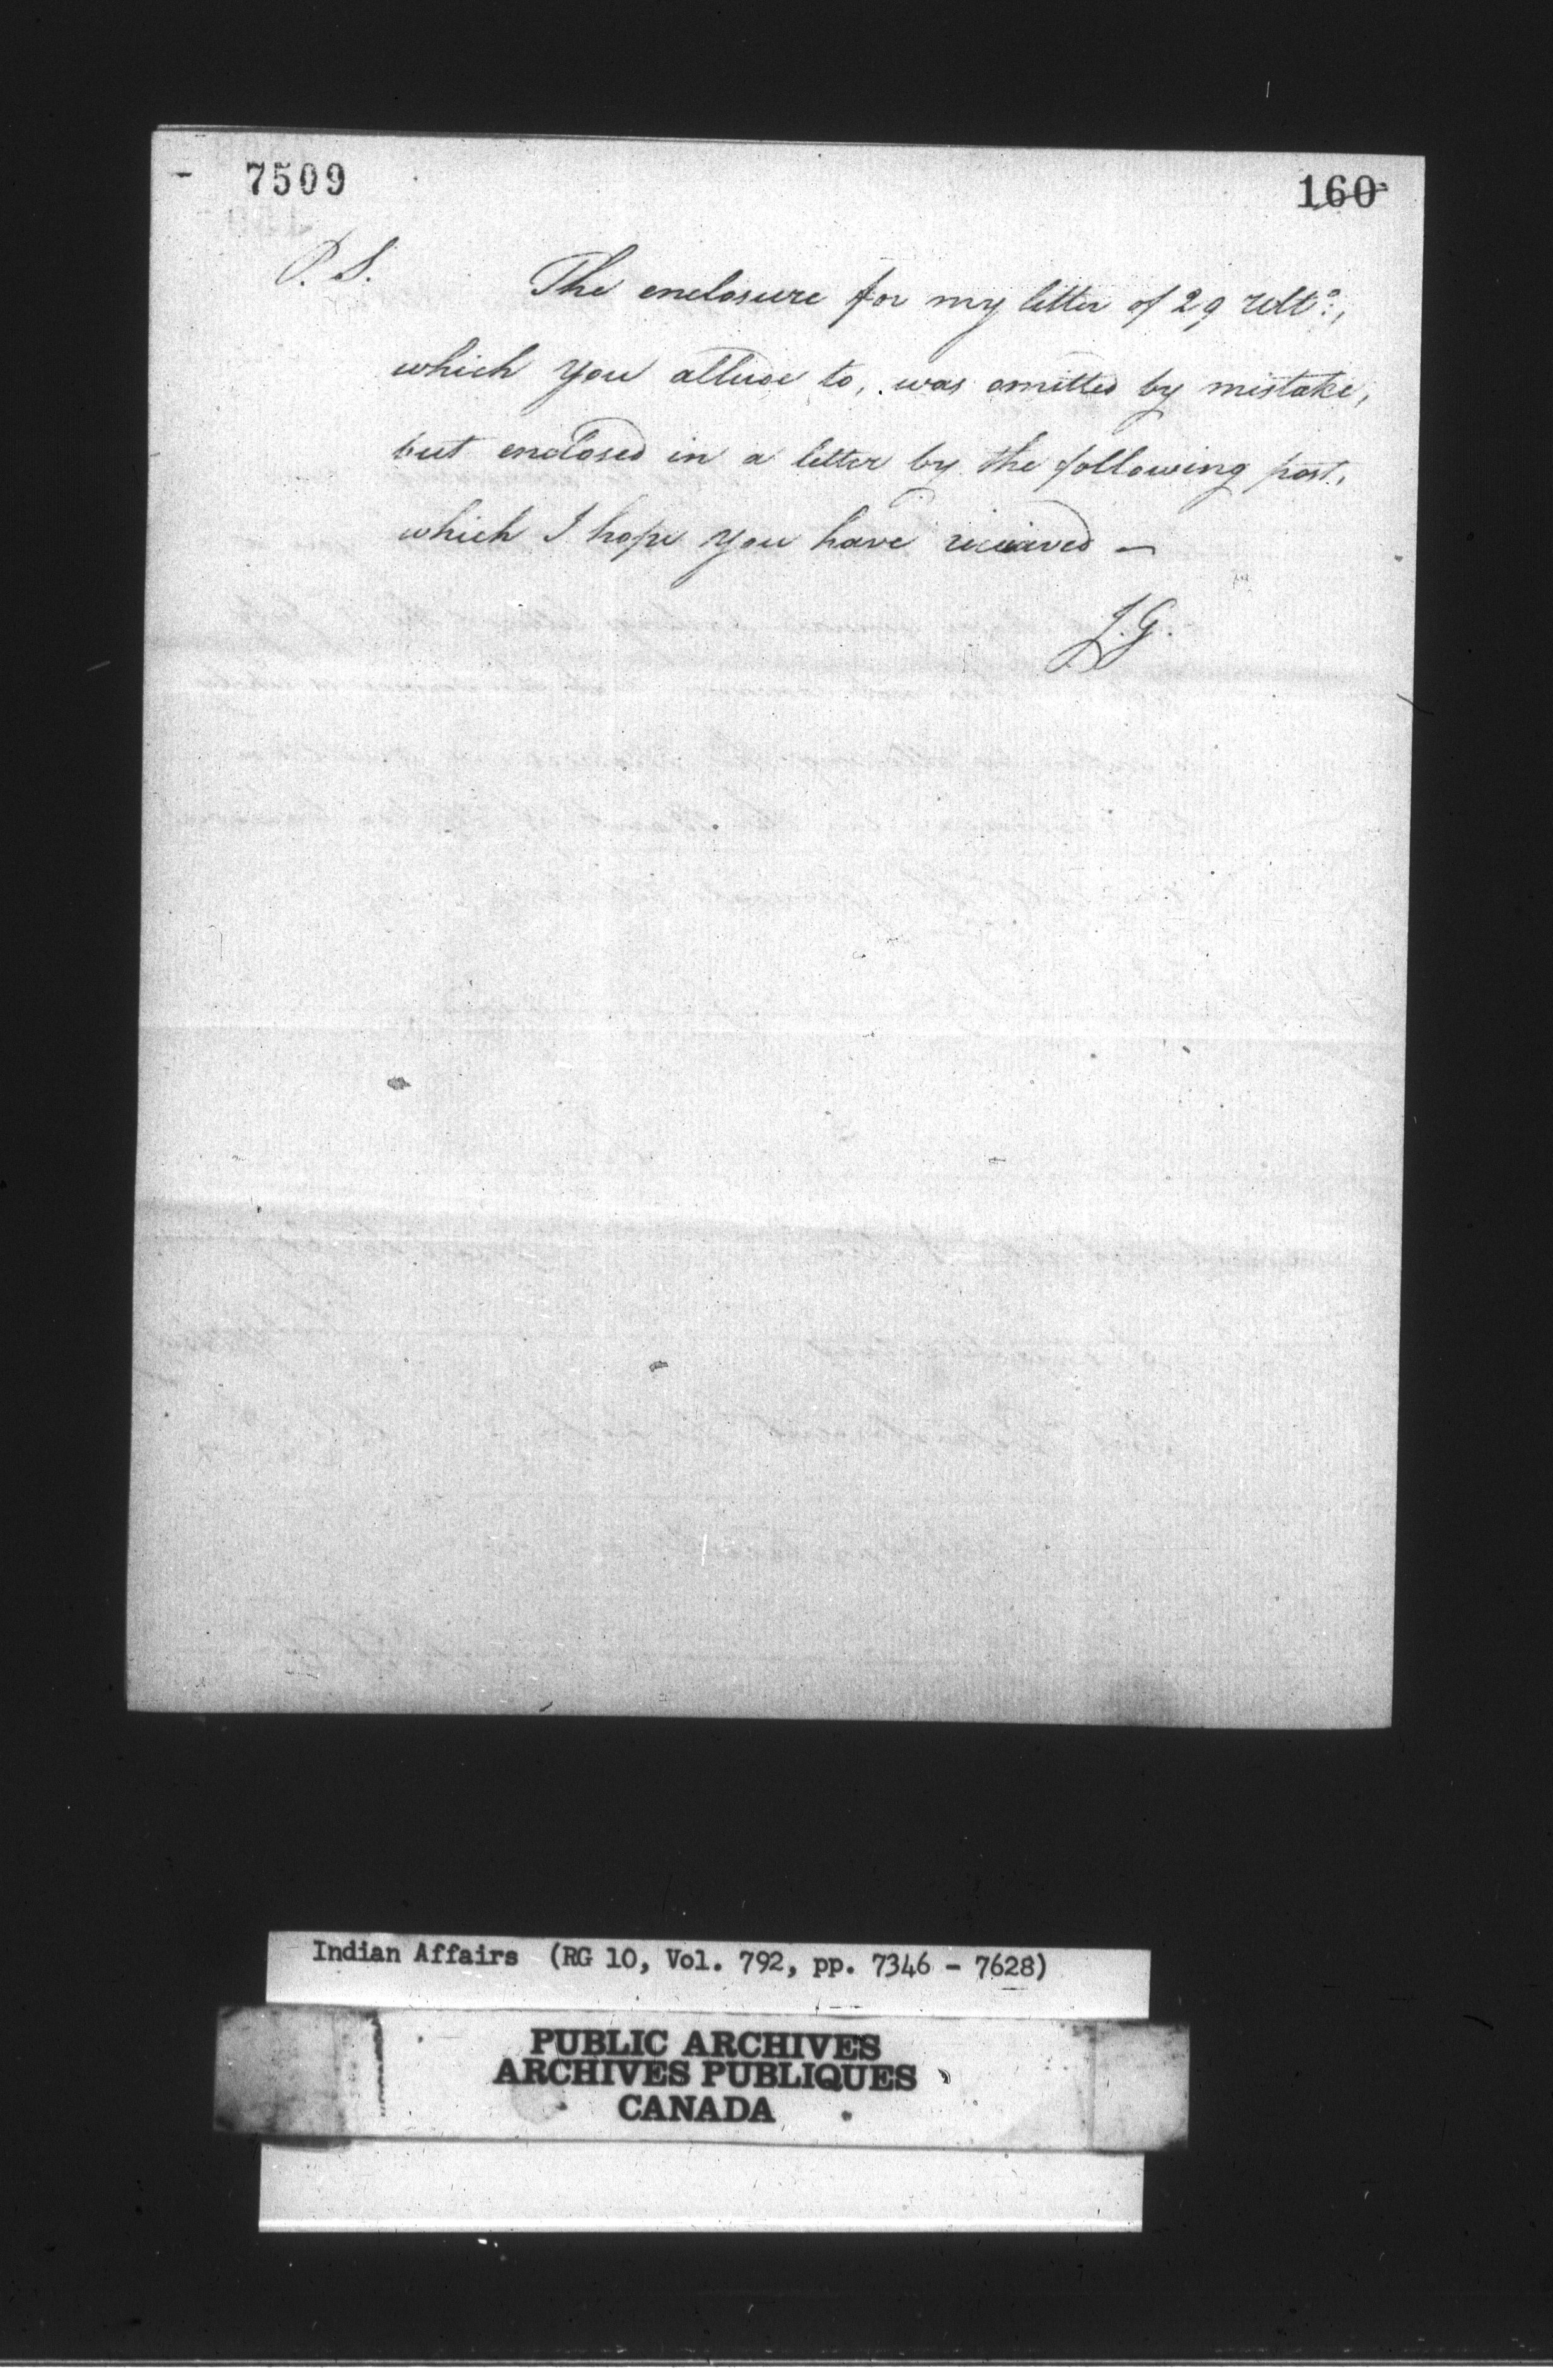 7509
160
P. S. The enclosure for my letter of 29 Ulto:,
which you allude to, was omitted by mistake,
but enclosed in a letter by the following post,
which I hope you have received —
J. G.
Indian Affairs (RG 10, Vol. 792, pp. 7346 - 7628)
PUBLIC ARCHIVES
ARCHIVES PUBLIQUES
CANADA